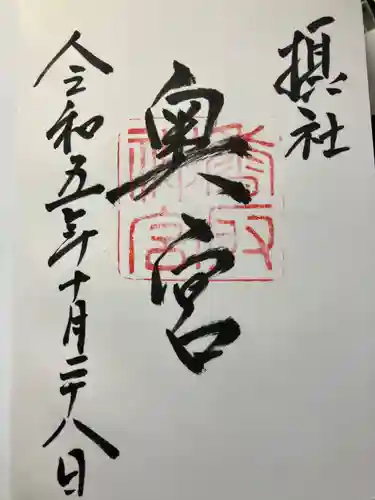 摂社
奥宮
令和五年十月二十八日
香取
神宮